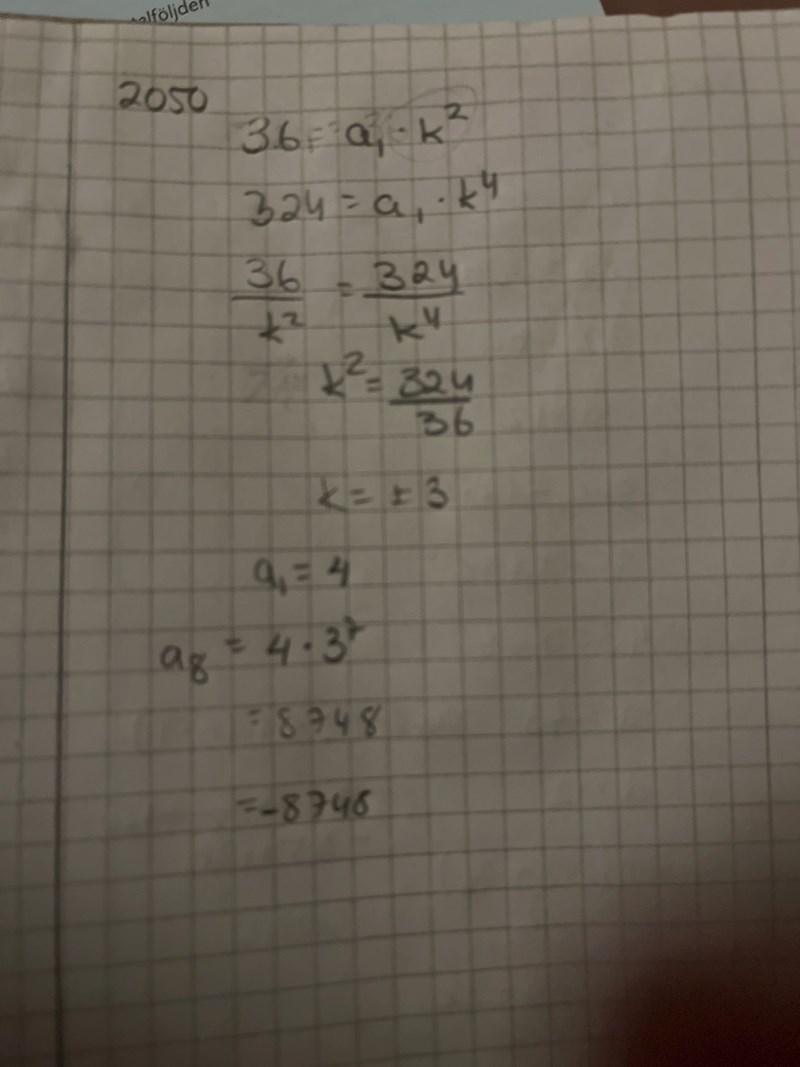 talföljden
2050
36 = a₁ · k²
324 = a₁ · k⁴
36/k² = 324/k⁴
k² = 324/36
k = ± 3
a₁ = 4
a₈ = 4 · 3⁷
= 8748
= -8748